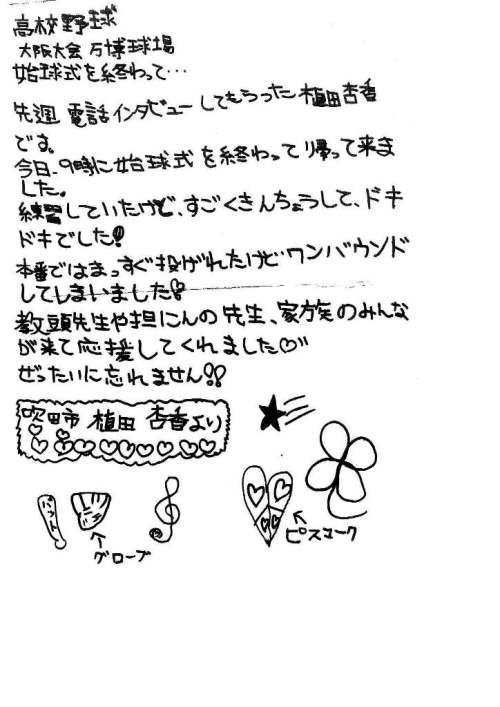 高校野球
大阪大会 万博球場
始球式を終わって…
先週 電話インタビューしてもらった 植田杏香
です。
今日、9時に始球式を終わって帰って来ま
した。
練習していたけど、すごくきんちょうして、ドキ
ドキでした!
本番ではまっすぐ投げれたけどワンバウンド
してしまいました!
教頭先生や担にんの先生、家族のみんな
が来て応援してくれました♡
ぜったいに忘れません!!
吹田市 植田 杏香より
バット
グローブ
ピスコーク